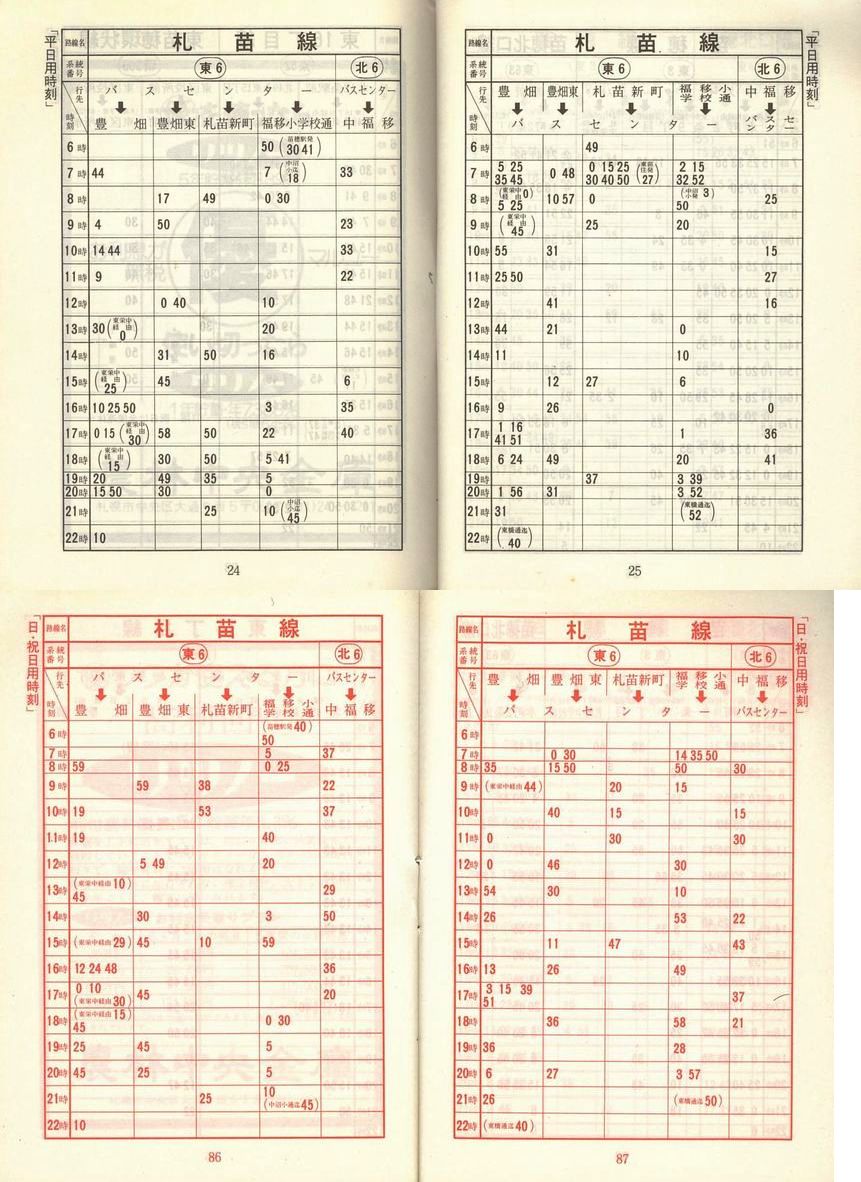 「平日用時刻」
路線名 札苗線
系統番号 東6 北6
行先 バスセンター バスセンター
時刻 豊畑 豊畑東 札苗新町 福移小学校通 中福移
6時 50 (苗穂駅発 30 41)
7時 44 7 (中沼小迄 18) 33
8時 17 49 0 30
9時 4 50 23
10時 14 44 33
11時 9 22
12時 0 40 10
13時 30 (東栄中経由 0) 20
14時 31 50 16
15時 (東栄中経由 25) 45 6
16時 10 25 50 3 35
17時 0 15 (東栄中経由 30) 58 50 22 40
18時 (東栄中経由 15) 30 50 5 41
19時 20 49 35 5
20時 15 50 30 0
21時 25 10 (中沼小迄 45)
22時 10
24
「平日用時刻」
路線名 札苗線
系統番号 東6 北6
行先 豊畑 豊畑東 札苗新町 福移小学校通 中福移
時刻 バスセンター バスセンター
6時 49
7時 5 25 35 45 0 48 0 15 25 30 40 50 (27) 2 15 32 52
8時 (東栄中経由 0) 5 25 10 57 0 (中沼小発 3) 50 25
9時 (東栄中経由 45) 25 20
10時 55 31 15
11時 25 50 27
12時 41 16
13時 44 21 0
14時 11 10
15時 12 27 6
16時 9 26 0
17時 1 16 41 51 1 36
18時 6 24 49 20 41
19時 37 3 39
20時 1 56 31 3 52
21時 31 (東橋通迄 52)
22時 (東橋通迄 40)
25
「日・祝日用時刻」
路線名 札苗線
系統番号 東6 北6
行先 バスセンター バスセンター
時刻 豊畑 豊畑東 札苗新町 福移小学校通 中福移
6時 (苗穂駅発 40) 50
7時 5 37
8時 59 0 25
9時 59 38 22
10時 19 53 37
11時 19 40
12時 5 49 20
13時 (東栄中経由 10) 45 29
14時 30 3 50
15時 (東栄中経由 29) 45 10 59
16時 12 24 48 36
17時 0 10 (東栄中経由 30) 45 20
18時 (東栄中経由 15) 45 0 30
19時 25 45 5
20時 45 25 5
21時 25 10 (中沼小通迄 45)
22時 10
86
「日・祝日用時刻」
路線名 札苗線
系統番号 東6 北6
行先 豊畑 豊畑東 札苗新町 福移小学校通 中福移
時刻 バスセンター バスセンター
6時
7時 0 30 14 35 50
8時 35 15 50 50 30
9時 (東栄中経由 44) 20 15
10時 40 15 15
11時 0 30 30
12時 0 46 30
13時 54 30 10
14時 26 53 22
15時 11 47 43
16時 13 26 49
17時 3 15 39 51 37
18時 36 58 21
19時 36 28
20時 6 27 3 57
21時 26 (東橋通迄 50)
22時 (東橋通迄 40)
87